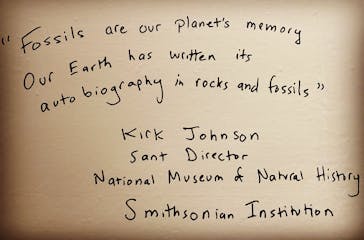 "Fossils are our planet's memory
Our Earth has written its
autobiography in rocks and fossils"
Kirk Johnson
Sant Director
National Museum of Natural History
Smithsonian Institution